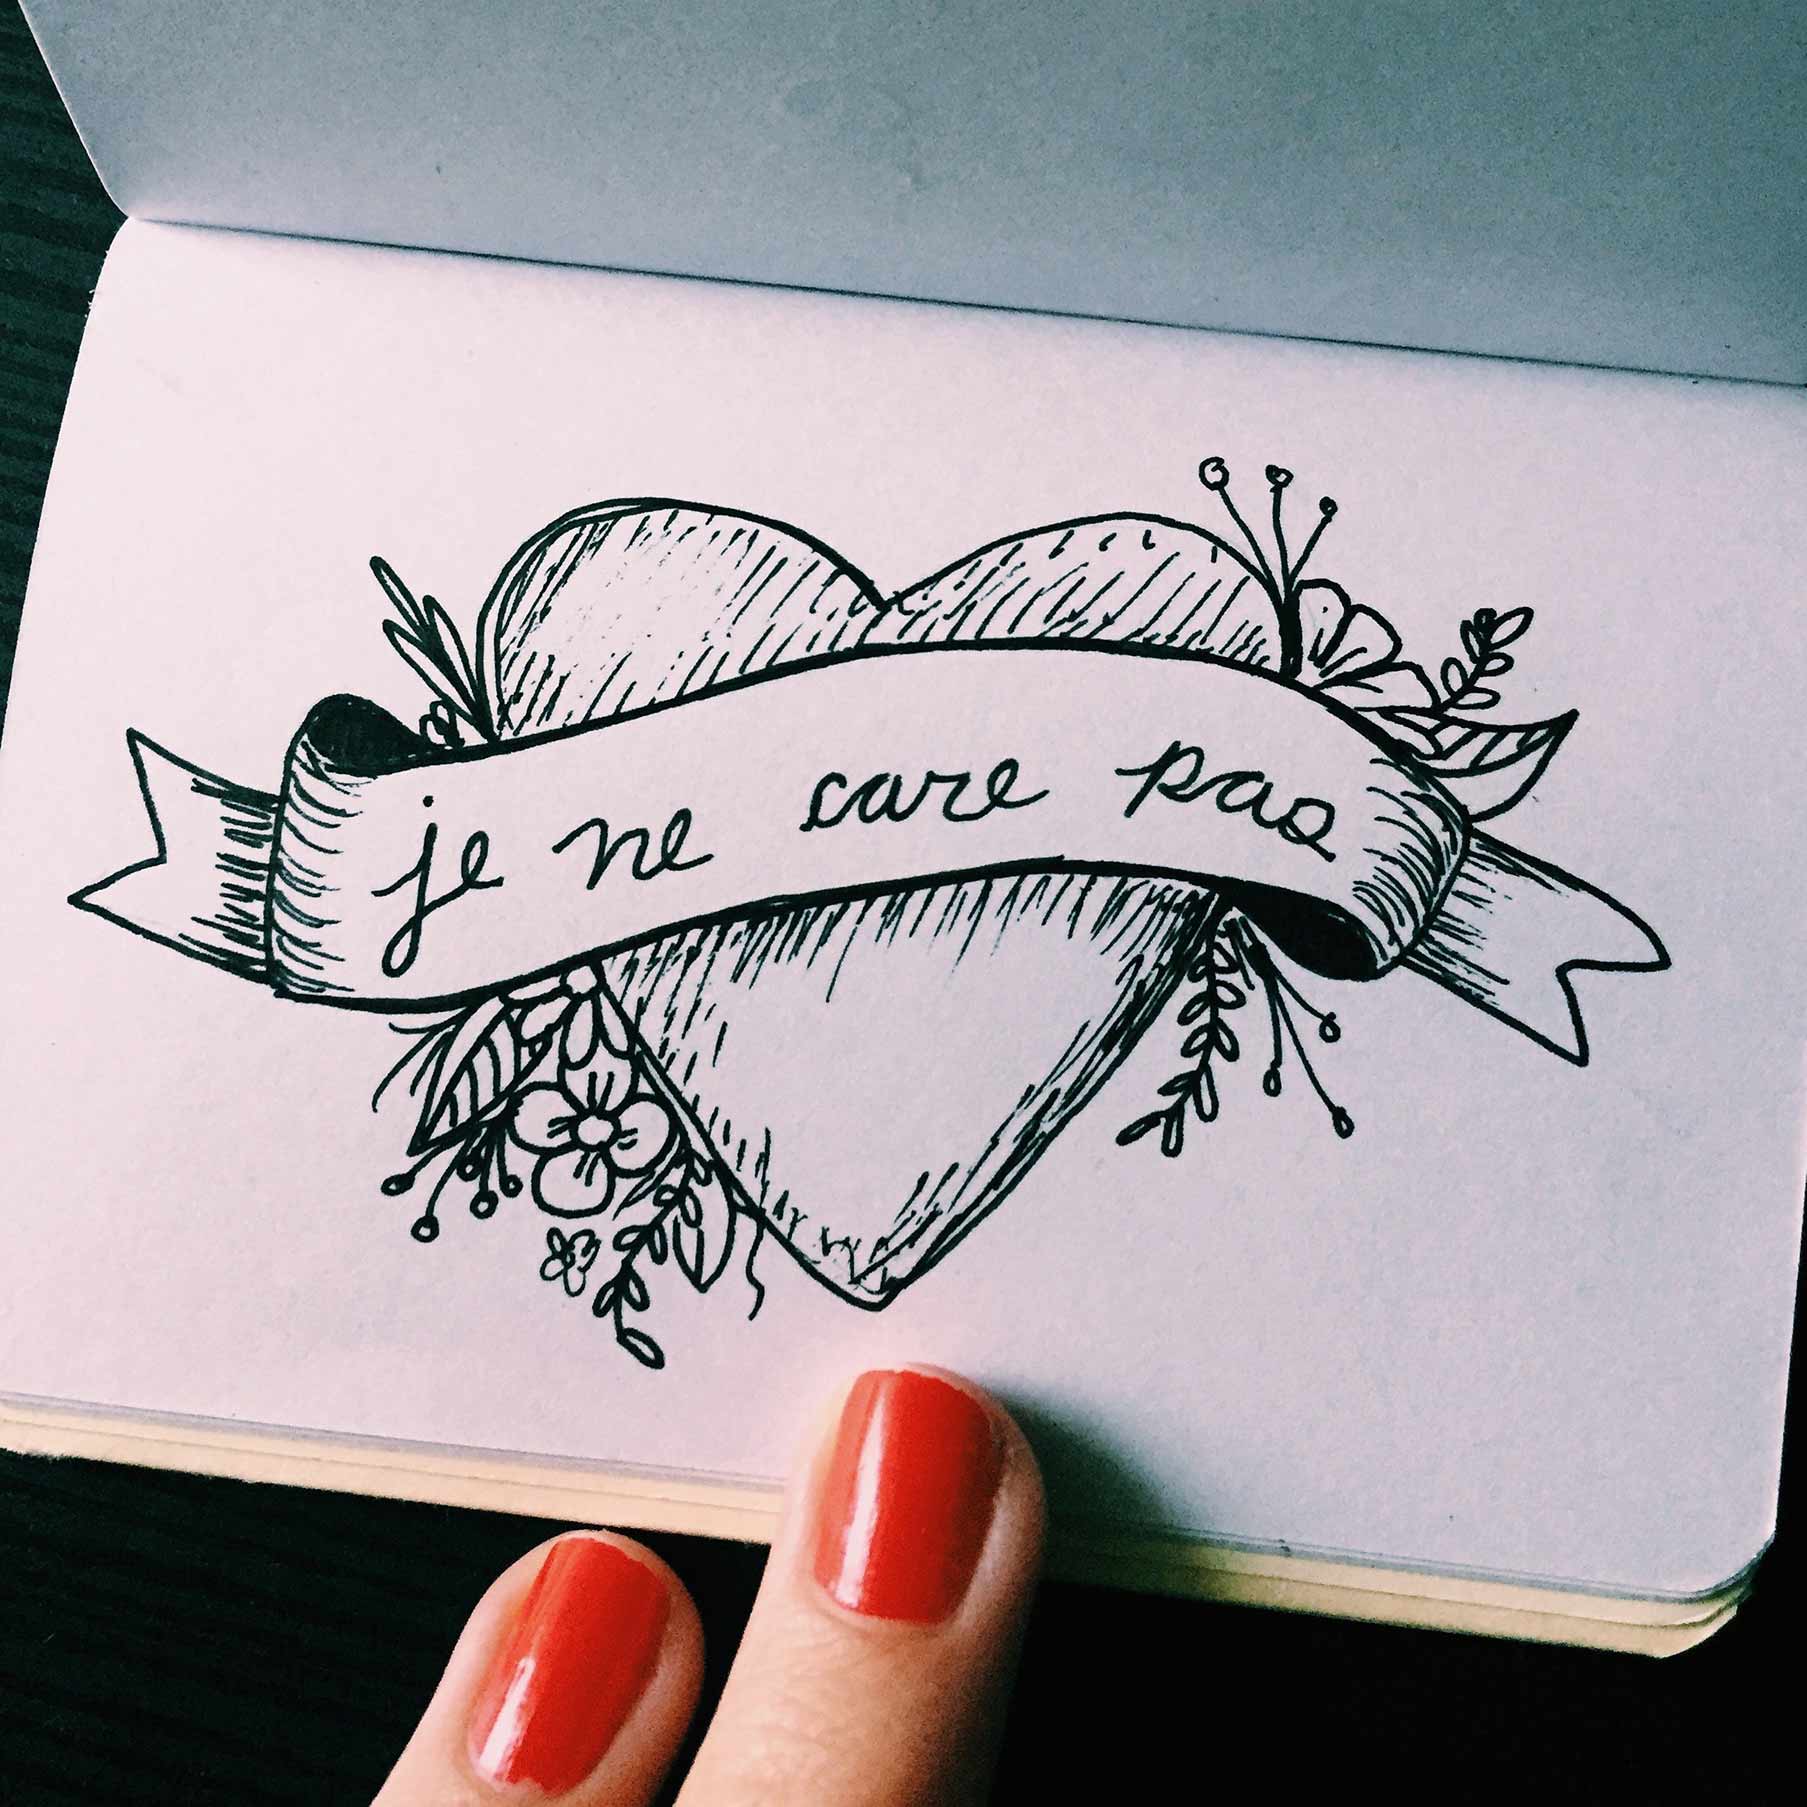 je ne care pas